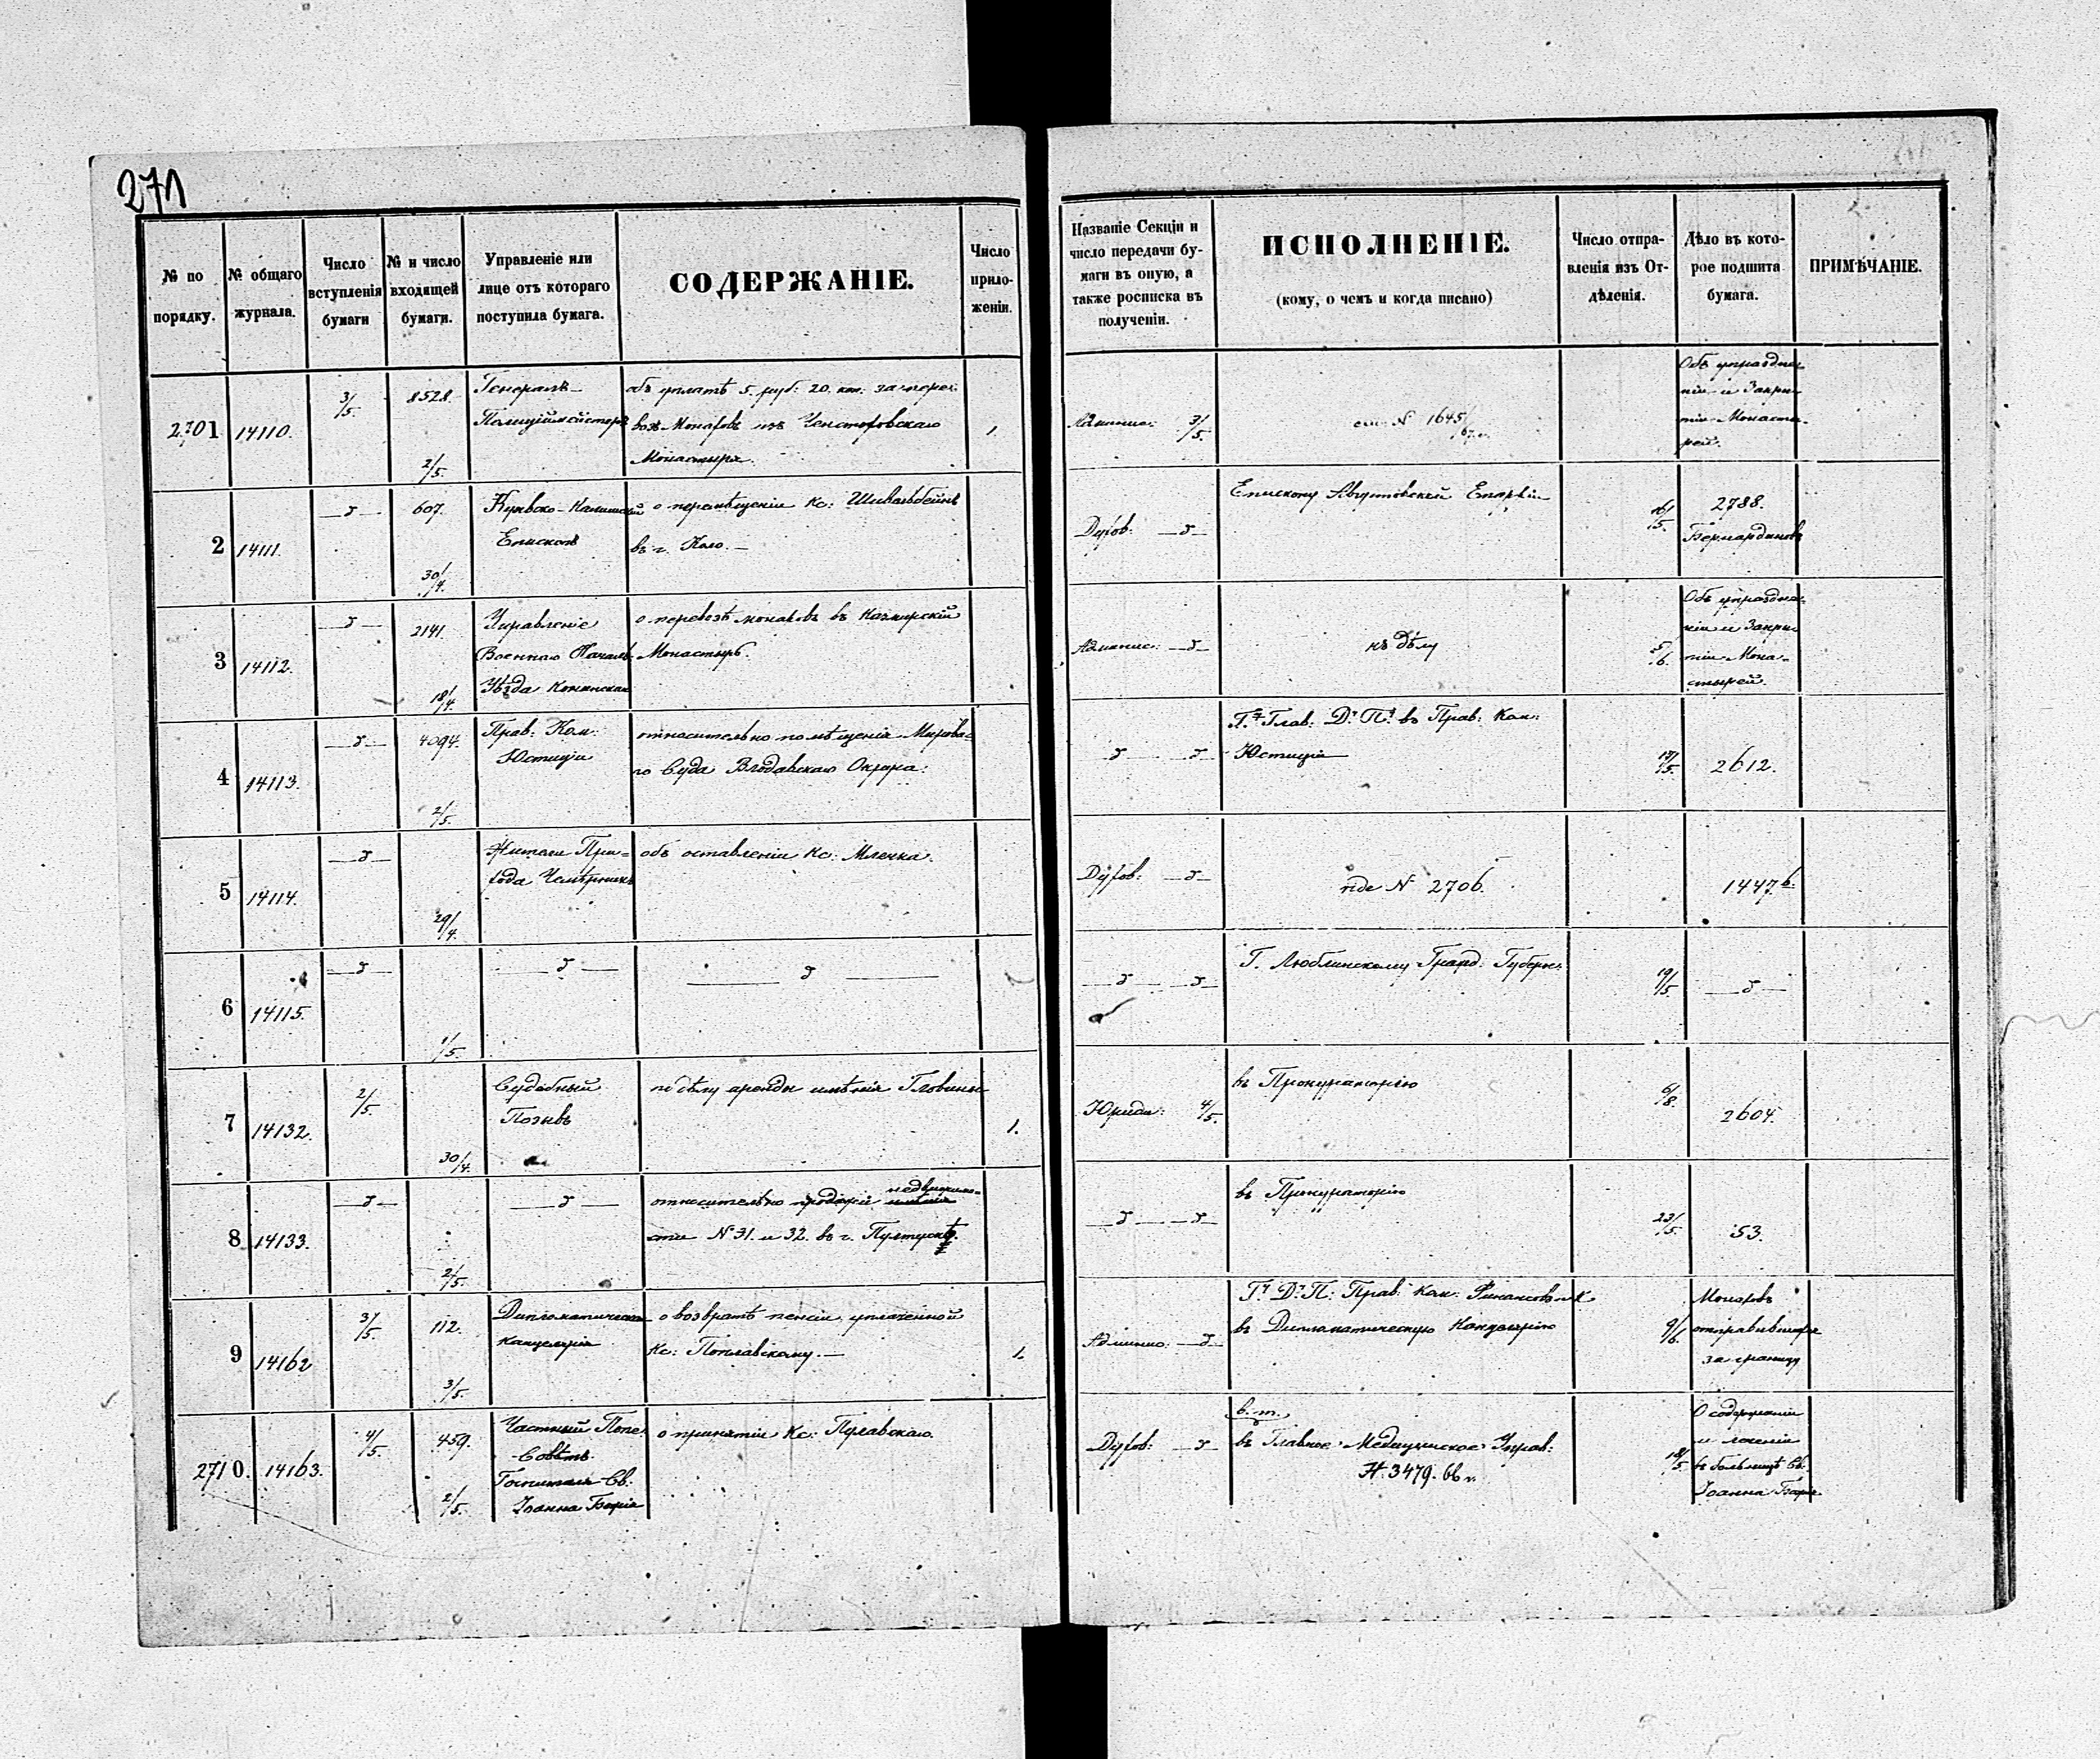 271
№ по порядку.
№ общаго журнала.
Число вступленія бумаги
№ и число входящей бумаги.
Управленіе или лице отъ котораго поступила бумага.
СОДЕРЖАНІЕ.
Число приложеніи.
Названіе Секціи и число передачи бумаги въ оную, а также росписка въ полученіи.
ИСПОЛНЕНІЕ.
(кому, о чемъ и когда писано)
Число отправленія изъ Отдѣленія.
Дѣло въ которое подшита бумага.
ПРИМѢЧАНІЕ.
2701 14110. 3/5. 8528. 2/5.
Генералъ-
Полиціймейстеръ
объ уплатѣ 5. руб: 20. коп. за пере-
возъ Монаховъ изъ Ченстоховскаго
Монастыря.
1.
Админис: 3/5.
см: № 1645/67.
Объ упраздне-
ніи и Закры-
тіи Монасты-
рей.
2 14111. —д— 607. 30/4.
Куявско-Калишскій
Епископъ
о перемѣщеніи Кс:
въ г. Коло.—
Духов: —д—
Епископу Августовской Епархіи
16/5.
2788.
Бернардиновъ
3 14112. —д— 2141. 18/4.
Управленіе
Военнаго Начал.
Уѣзда Конинскаго
о перевозѣ монаховъ въ Казмирскій
Монастырь.
Админис: —д—
къ дѣлу
5/6.
Объ упраздне-
ніи и Закры-
тіи Мона-
стырей.
4 14113. —д— 4094. 2/5.
Прав: Ком:
Юстиціи
относительно помѣщенія Мирова-
го Суда Влодавскаго Округа.
д д
Г. Глав: Д. П. въ Прав: Ком:
Юстиціи
2612.
5 14114. —д— 29/4.
Жители При-
хода
объ оставленіи Кс: Млечка.
Духов: —д—
vide N 2706.
1447.
6 14115. —д— 1/5.
—д—
д
—д— д—
Г. Люблинскому Гражд: Губерн:
19/5.
—д—
7 14132. 2/5. 30/4.
Судебный
Позывъ
по дѣлу аренды имѣнія
1.
Юриди: 4/5.
въ Прокураторію
6/8.
2604.
8 14133. —д— 2/5.
—д—
относительно продажи недвижимо-
сти N 31. и 32. въ г. Пултускѣ.
—д— —д—
въ Прокураторію
23/5.
53.
9 14162 3/5. 112. 3/5.
Дипломатическая
Канцелярія
о возвратѣ пенсіи, уплаченной
Кс: Поплавскому.—
1.
Админис: —д—
Г. Д. П: Прав: Ком: Финансовъ
въ Дипломатическую Канцелярію
9/6.
Монаховъ
отправившихся
за границу
2710. 14163. 4/5. 459. 2/5.
Частный Попе.
Совѣтъ
Госпиталя Св.
Іоанна Божія
о принятіи Кс: Пулавскаго.
Духов: —д—
в. т.
въ Главное Медицинское Управ:
N. 3479. 66 г.
18/5.
О содержаніи
и леченіи
въ больницѣ Св.
Іоанна Божія